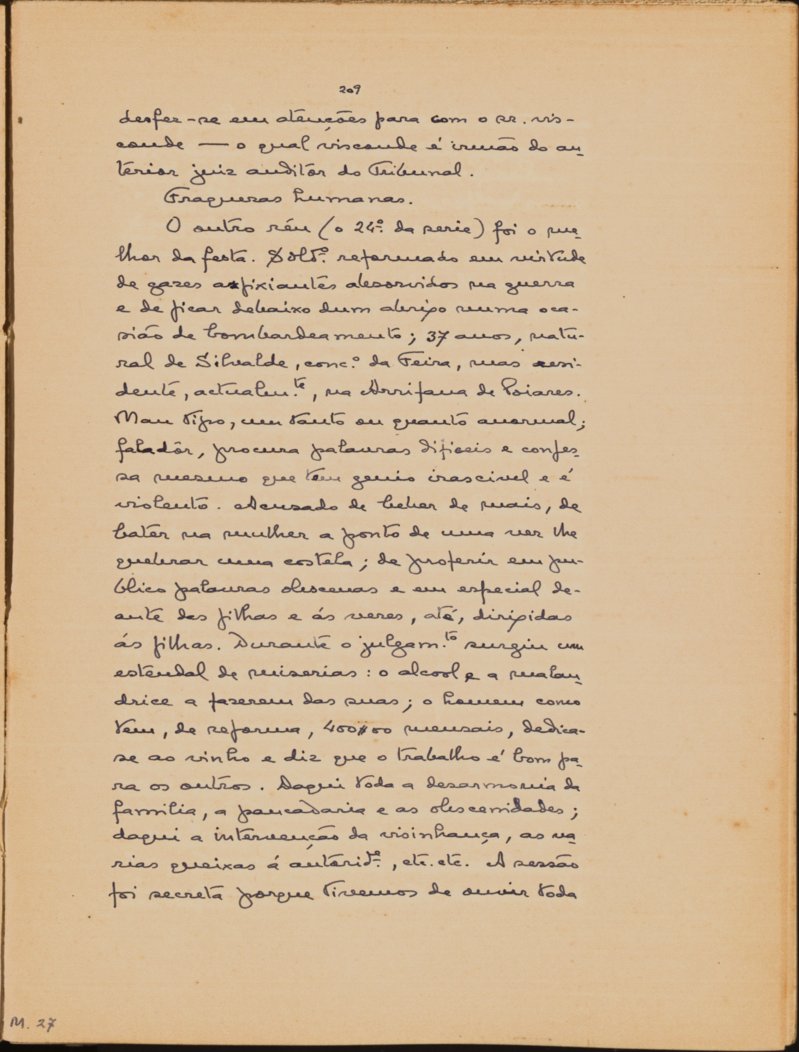 209
desfez-se em atenções para com o sr. vis-
conde — o qual visconde é irmão do an-
terior juiz auditôr do Tribunal.
Fraquezas humanas.
O outro réu (o 24º. da serie) foi o me-
lhor da festa. Soldº. reformado em virtude
de gazes asfixiantes absorvidos na guerra
e de ficar debaixo dum abrigo numa oca-
sião de bombardeamento; 37 anos, natu-
ral de Silvalde, conc.º da Feira, mas resi-
dente, actualm.te, na Arrifana de Poiares.
Mau tipo, um tanto ou quanto anormal;
faladôr, procura palavras dificeis e confes-
sa mesmo que tem genio irascivel e é
violento. Acusado de beber de mais, de
bater na mulher a ponto de uma vez lhe
quebrar uma costela; de proferir em pu-
blico palavras obscenas e em especial de-
ante das filhas e ás vezes, até, dirigidas
ás filhas. Durante o julgam.to surgiu um
estendal de miserias: o alcool e a malan-
drice a fazerem das suas; o homem como
tem, de reforma, 400$00 mensais, dedica-
se ao vinho e diz que o trabalho é bom pa-
ra os outros. Daqui toda a desarmonia da
familia, a pancadaria e as obscenidades;
daqui a intervenção da visinhança, as va-
rias queixas á autorid.e, etc. etc. A sessão
foi secreta porque tivemos de ouvir toda
M. 27